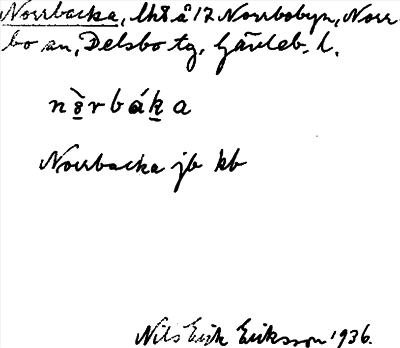 Norrbacka, lht å 17 Norrbobyn, Norr-
bo sn, Delsbo tg, Gävleb. l.
nòrbáka
Norrbacka jb kb
Nils Erik Eriksson 1936.